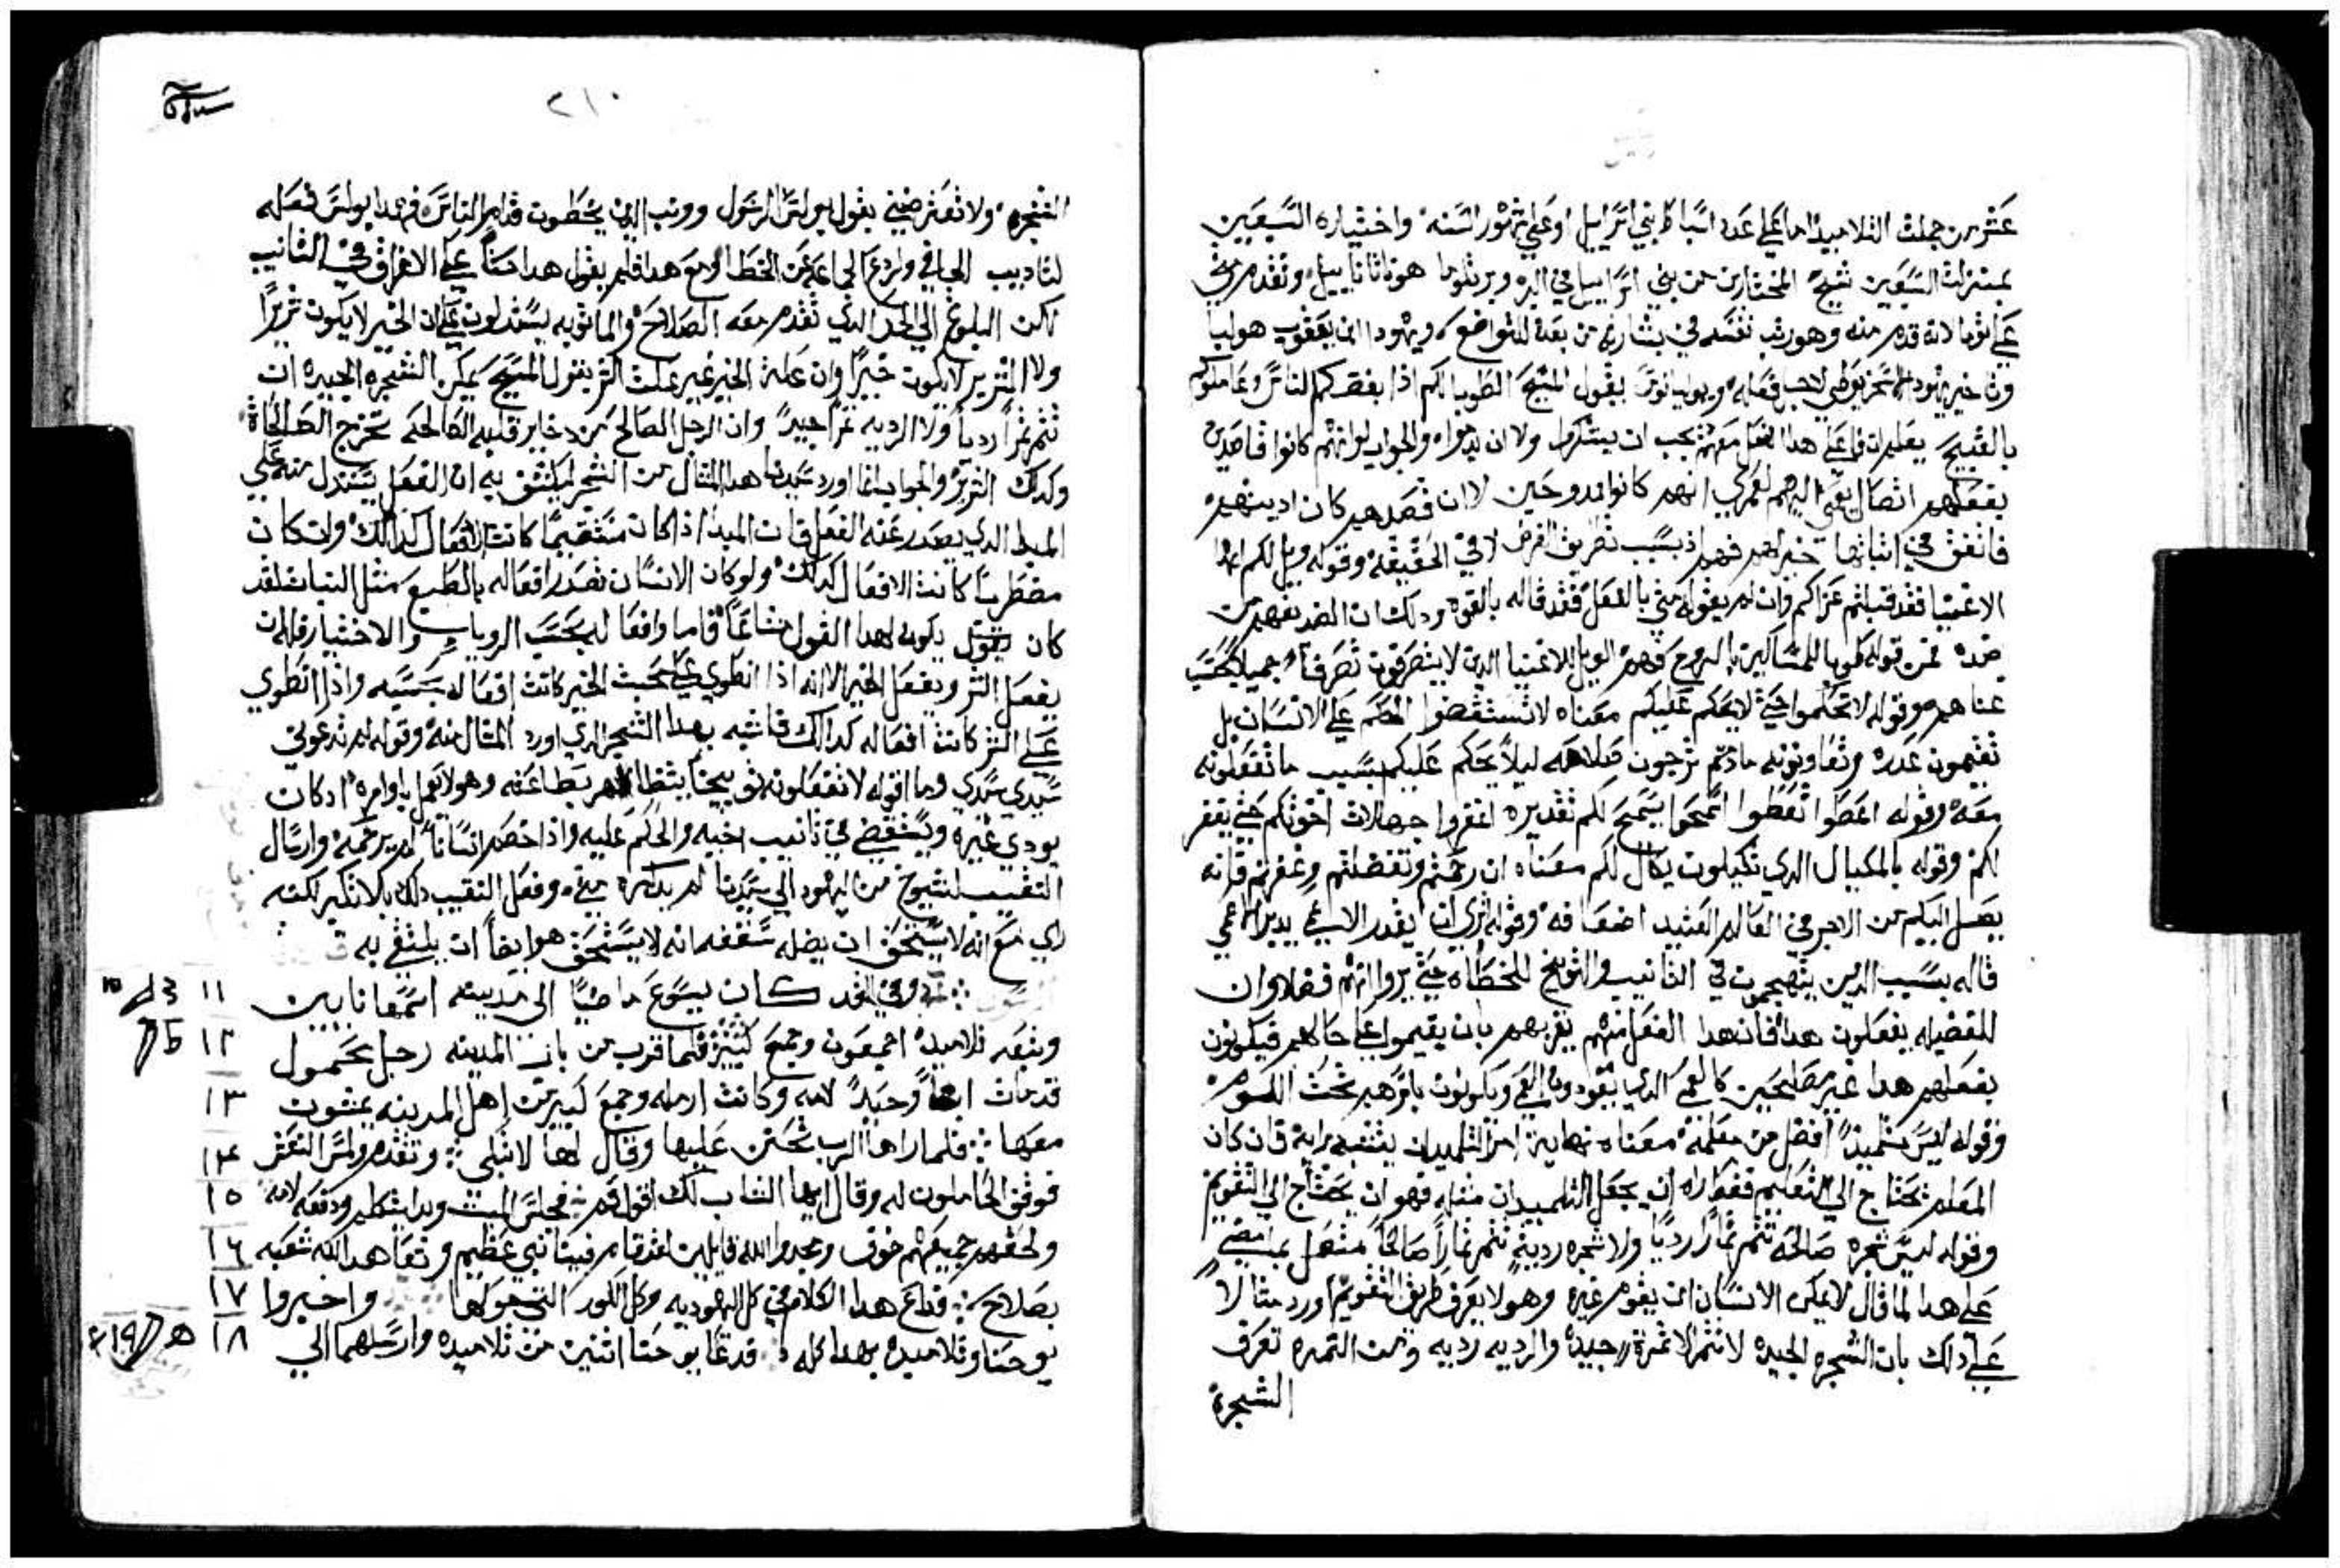 عشر من جملت التلاميذ اما على عدد اسباط بني اسراييل او على شهور السنه واختياره السبعين
بمنزلت السبعين شيخ المختارين من بني اسراييل في البر وبرتلوما هو ناتانايل وتقدم متي
على توما لانه قدم منه وهو رتب نفسه في بشارته من بعد للتواضع ويهودا ابن يعقوب هو لبا
وتاخير يهودا السخريوطي لاجل فعله ويقول المسيح الطوبا لكم اذا بغضكم الناس وعاملوكم
بالقبيح فعلى هذا الفعل معهم يجب ان يشكروا ولا ان يدموا والجواب لو انهم كانوا قاصدين
بفعلهم اتصال اليهم لعمري انهم كانوا ممدوحين لان قصدهم كان اديتهم
فاتفق في اتنايها خير لهم فهو اذ بسبب تطريق الفرض لا في الحقيقه وقوله ويل لكم ايها
الاغنيا فقد قبلتم عزاكم وان لم يقوله متي بالفعل فقد قاله بالقوه ودلك ان الضد يفهم من
ضده فمن قوله طوبا للمساكين بالروح فهم الويل للاغنيا الدين لا يتصرفون تصرفا جميلا بحسب
غناهم وقوله لا تحكموا حتى لا يحكم عليكم معناه لا تستقضوا الحكم على الانسان بل
تقيمون عدره وتعاونونه ما دمتم ترجون صلاحه ليلا يحكم عليكم بسبب ما تفعلونه
معه وقوله اعطوا تعطوا اسمحوا يسمح لكم تقديره اغفروا جهالات اخوتكم حتى يغفر
لكم وقوله بالمكيال الدي تكيلون يكال لكم معناه ان رحمتم وتفضلتم وغفرتم فانه
يصل اليكم من الاجر في العالم العتيد اضعافه وقوله اترى يقدر الاعمى يدبر اعمى
قاله بسبب الدين يتهجمون في التانيب والتوبيخ للخطاه حتى يروا انهم فضلا وان
للفضيله يفعلون هدا فان هدا الفعل منهم يغريهم بان يقيموا على حالهم فيكونون
بفعلهم هدا غير مصلحين كالعمى الدي يقودون العمى ويكونون باسرهم تحت الكسور
وقوله ليس تلميذ افضل من معلمه معناه نهاية امر التلميذ ان يتشبه برايه فان كان
المعلم يحتاج الي التعليم فقصاراه ان يجعل التلميذ مثله فهو ان يحتاج الي التقويم
وقوله ليس شجره صالحه تثمر ثمارا رديا ولا شجره رديه تثمر ثمارا صالحا متصل بما مضى
على هدا لما قال لا يمكن الانسان ان يقوم غيره وهو لا يعرف طريق التقويم اورد مثالا
على دلك بان الشجره الجيده لا تثمر الا ثمرة جيده والرديه رديه ومن التمره تعرف
الشجرة
٢١٠
الشجره ولا تعترضني بقول بولس الرسول ووبخ الدين يخطون قدام الناس فهدا بولس فعله
لتاديب الجافي وليردع الجماعه عن الخطا ومع هدا فلم يقول هدا حتا على الاغراق في التانيب
لكن البلوغ الي الحد الدي تقدم معه الصلاح والمانويه يستدلون على ان الخير لا يكون شريرا
ولا الشرير لا يكون خيرا وان علة الخير غير علت الشر بقول المسيح لا يمكن الشجره الجيده ان
تثمر ثمرا رديا ولا الرديه ثمرا جيدا وان الرجل الصالح من دخاير قلبه الصالحه تخرج الصالحات
وكدلك الشرير والجواب انما اورد سيدنا هدا المثال من الشجر ليكشف به ان الفعل يستدل منه على
المبدا الدي يصدر عنه الفعل فان المبدا اذا كان مستقيما كانت الافعال كدلك وان كان
مضطربا كانت الافعال كدلك ولو كان الانسان تصدر افعاله بالطبع مثل النبات لقد
كان يكون لهدا القول مساغا فاما وافعاله بحسب الرويات والاختيار فله ان
يفعل الشر ويفعل الخير الا انه اذا انطوي على محبت الخير كانت افعاله بحسبه واذا انطوي
على الشر كانت افعاله كدالك فاشبه بهدا الشجر الدي اورد المثال منه وقوله لم تدعوني
سيدي سيدي وما اقوله لا تفعلونه توبيخا
يودي غيره ويستقضي في تانيب اخيه والحكم عليه واذا خصم انسانا لم يرحمه وارسال
النقيب لشيوخ من اليهود الي سيدنا لم يدكره متي وفعل النقيب دلك بلا نكير لكنه
راي مع انه لا يستحق ان يدخل سقفه انه لا يستحق هو ايضا ان يلتقي به
١١ وفي الغد كان يسوع ماضيا الى مدينه اسمها نايين
١٢ وتبعه تلاميده اجمعون وجمع كثير فلما قرب من باب المدينه رجل محمول
١٣ قد مات ابنا وحيدا لامه وكانت ارمله وجمع كبير من اهل المدينه يمشون
١٤ معها فلما راها الرب تحنن عليها وقال لها لا تبكي وتقدم ولمس النعش
١٥ فوقف الحاملون له وقال ايها الشاب لك اقول قم فجلس الميت وبدا يتكلم ودفعه لامه
١٦ ولحقهم جميعهم خوف ومجدوا الله قايلين لقد قام فينا نبي عظيم وتعاهد الله شعبه
١٧ بصلاح فداع هدا الكلام في كل اليهوديه وكل الكور التي حولها واخبروا
١٨ يوحنا وتلاميده بهدا كله فدعا يوحنا اتنين من تلاميده وارسلهما الي